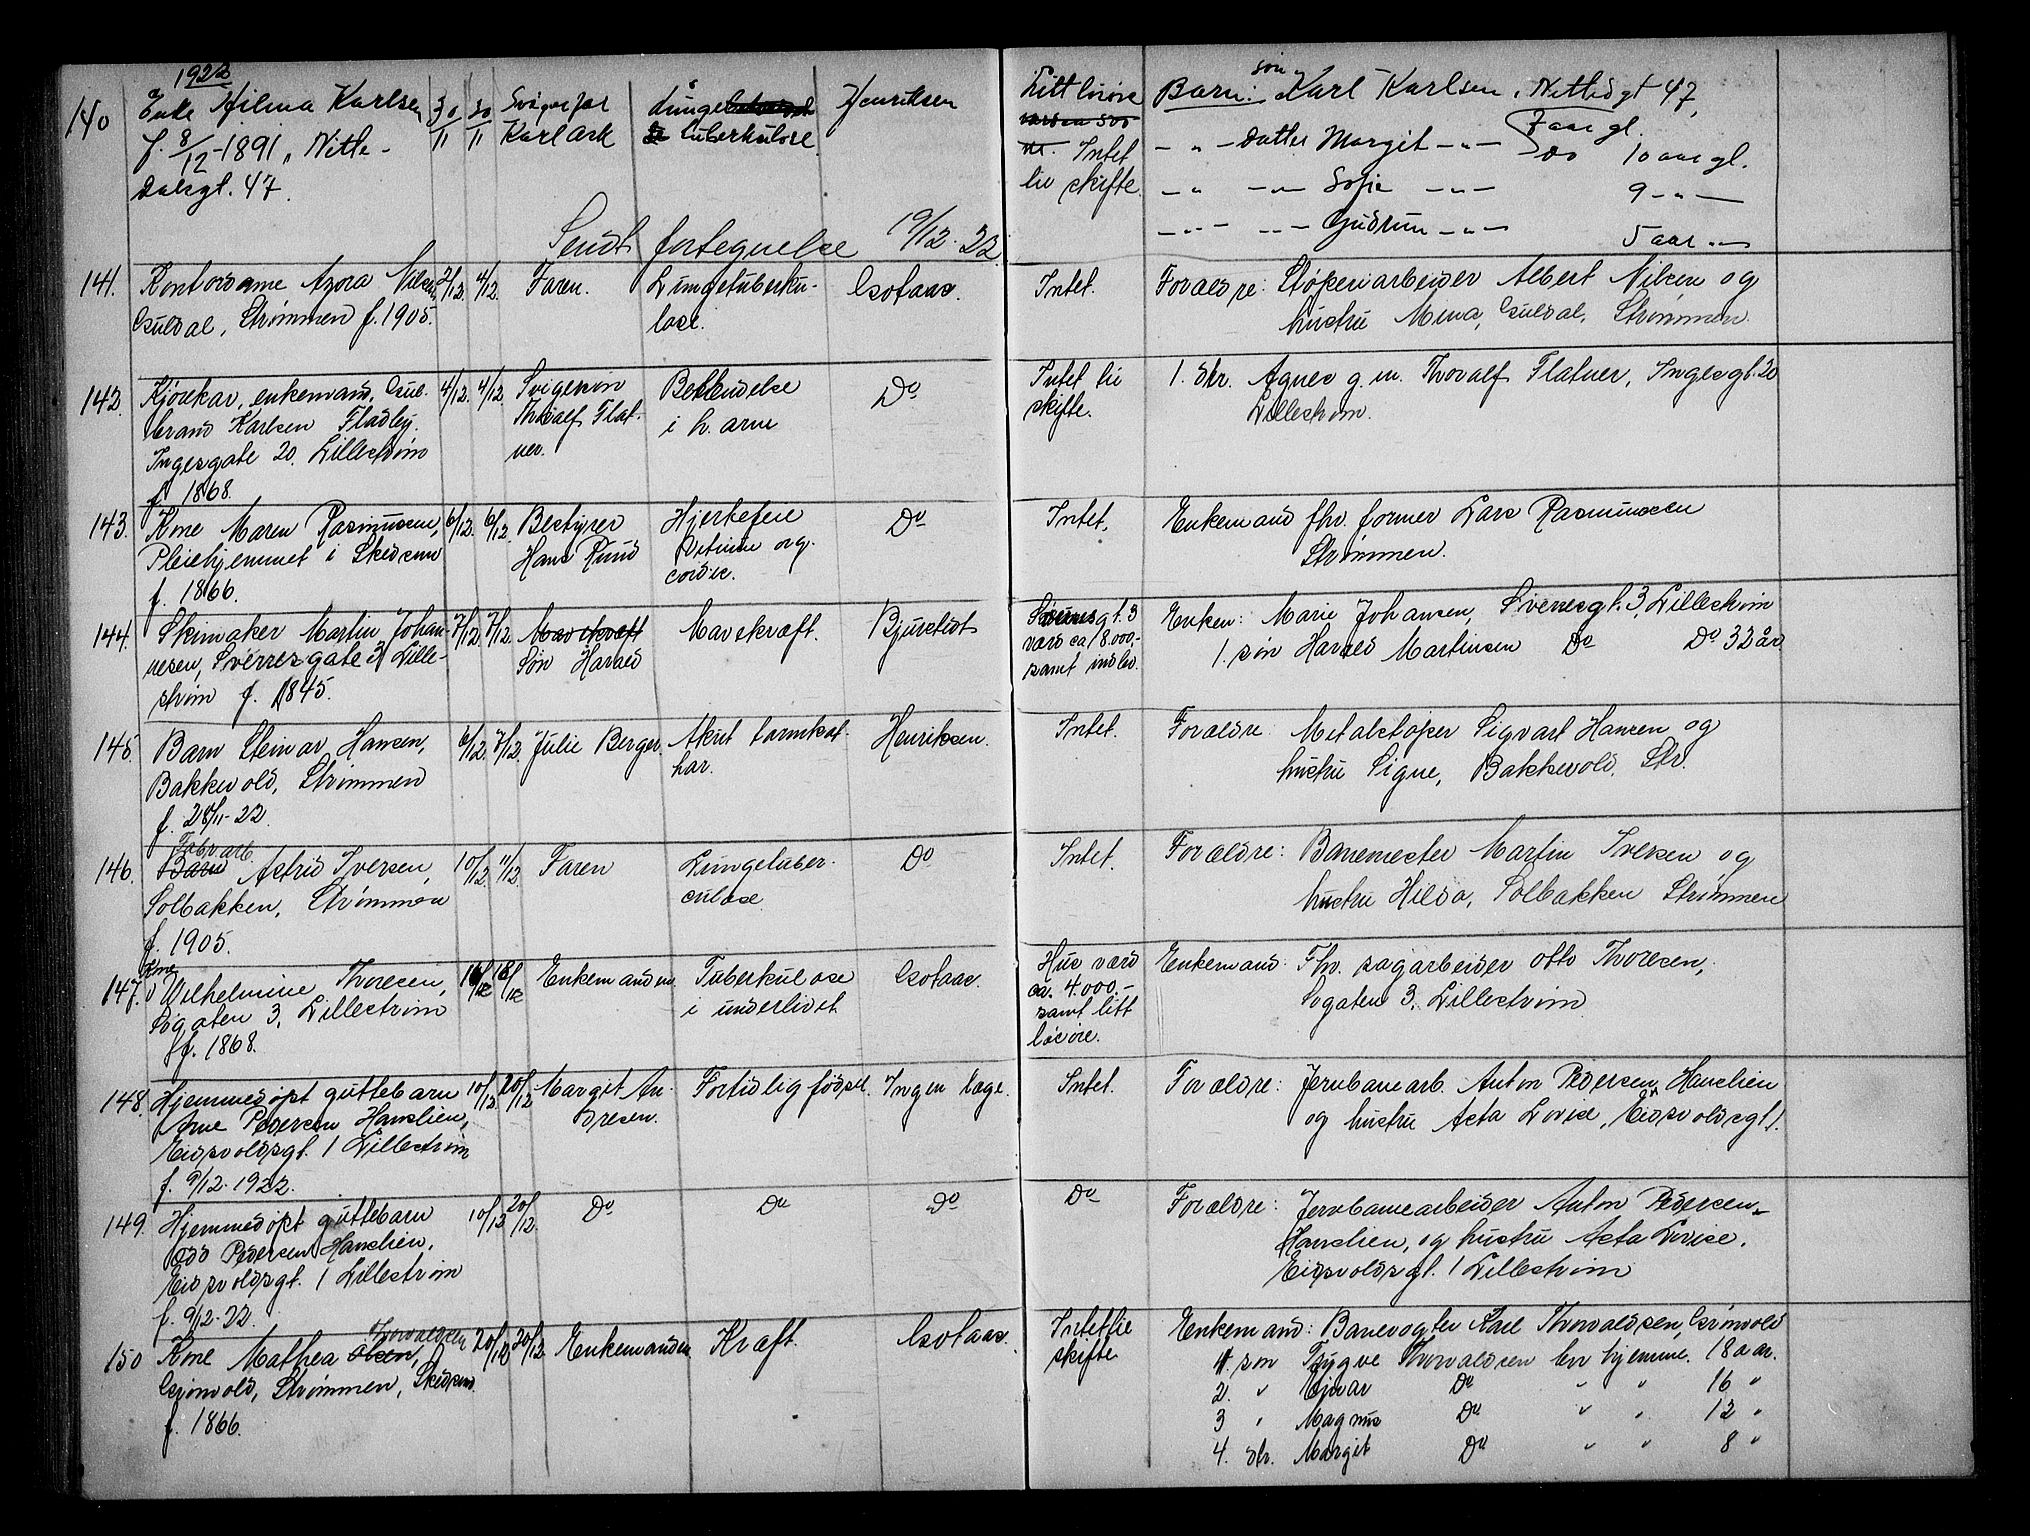 1922
140 Enke Hilma Karlsen 30/11 30/11 Svigerfar Lunge Henriksen Litt løsøre Barn: søn Karl Karlsen, Nittedsgt 47,
f. 8/12-1891, Nitte- Karl Ark tuberkulose Intet 7 aar gl.
dalsgt. 47. til skifte - " - datter Margit - " - Do 10 aar gl.
- " - " - Sofie - " - 9 - " -
- " - " - Gudrun - " - 5 aar - " -
Sendt fortegnelse 19/12-22.
141. Kontordame Azora Nilsen, 2/12. 4/12. Faren. Lungetuberku- Gotaas. Intet. Forældre: Støperiarbeider Albert Nilsen og
Guldal, Strømmen f. 1905. lose. hustru Mina, Guldal, Strømmen.
142. Kjørekar, enkemand, Gul- 4/12. 4/12. Svigersøn Betendelse Do Intet til 1. dtr. Agnes g. m. Thoralf Flatner, Ingesgt. 20
brand Karlsen Fladby. Thoralf Flat- i h. arm skifte. Lillestrøm.
Ingesgate 20. Lillestrøm ner.
f. 1868.
143. Kone Maren Rasmussen, 6/12. 6/12. Bestyrer Hjertefeil Do Intet. Enkemand fhv. former Lars Rasmussen
Pleiehjemmet i Skedsmo Hans Ruud org. Strømmen.
f. 1866. cordis.
144. Skimaker Martin Johan- 7/12. 7/12. Mavekræft Mavekræft. Bjurstedt Sverresgt. 3 Enken: Marie Johansen, Sverresgt. 3, Lillestrøm
nesen, Sverresgate 3 Lille- Søn Harald værd ca 18.000,- 1. søn Harald Martinsen Do Do 32 år
strøm f. 1845. samt indbo.
145. Barn Steinar Hansen, 6/12. 7/12. Julie Berger. Akut tarmkat- Henriksen. Intet. Forældre: Metalstøper Sigvart Hansen og
Bakkevold, Strømmen har. hustru Signe, Bakkevold, Str.
f. 28/11-22.
Fabr.arb.
146. Barn Astrid Iversen, 10/12. 11/12. Faren Lungetuber- Do Intet. Forældre: Banemester Martin Iversen og
Solbakken, Strømmen culose. hustru Hilda, Solbakken Strømmen
f. 1905.
Kone
147. Wilhelmine Thoresen, 16/12 18/12 Enkemanden Tuberkulose Gotaas. Hus værd Enkemand: Fhv. sagarbeider Otto Thoresen,
Sogaten 3, Lillestrøm i underlivet. ca. 4.000.- Sogaten 3, Lillestrøm
f. 1868. samt litt
løsøre.
148. Hjemmedøpt guttebarn 10/12. 20/12. Margit An- Fortidlig fødsel. Ingen læge. Intet. Forældre: Jernbanearb. Anton Pedersen Hanslien
Arne Pedersen Hanslien, dresen. og hustru Asta Lovise, Eidsvoldsgt 1.
Eidsvoldsgt. 1 Lillestrøm
f. 9/12-1922.
149. Hjemmedøpt guttebarn 10/12 20/12. Do Do Do Do Forældre: Jernbanearbeider Anton Pedersen-
Odd Pedersen Hanslien, Hanslien, og hustru Asta Lovise.
Eidsvoldsgt. 1 Lillestrøm Eidsvoldsgt. 1 Lillestrøm
f. 9/12-22.
Thorvaldsen
150 Kone Mathea Olsen, 20/12 20/12 Enkemanden Kræft. Gotaas. Intet til Enkemand: Banevogter Karl Thorvaldsen, Grønvold
Grønvold, Strømmen, Skedsmo. skifte 1. søn Trygve Thorvaldsen bor hjemme. 18 aar.
f. 1866. 2. " Einar Do " " 16 "
3 " Magnus Do " " 12 "
4. dtr. Margit Do " " 8 "